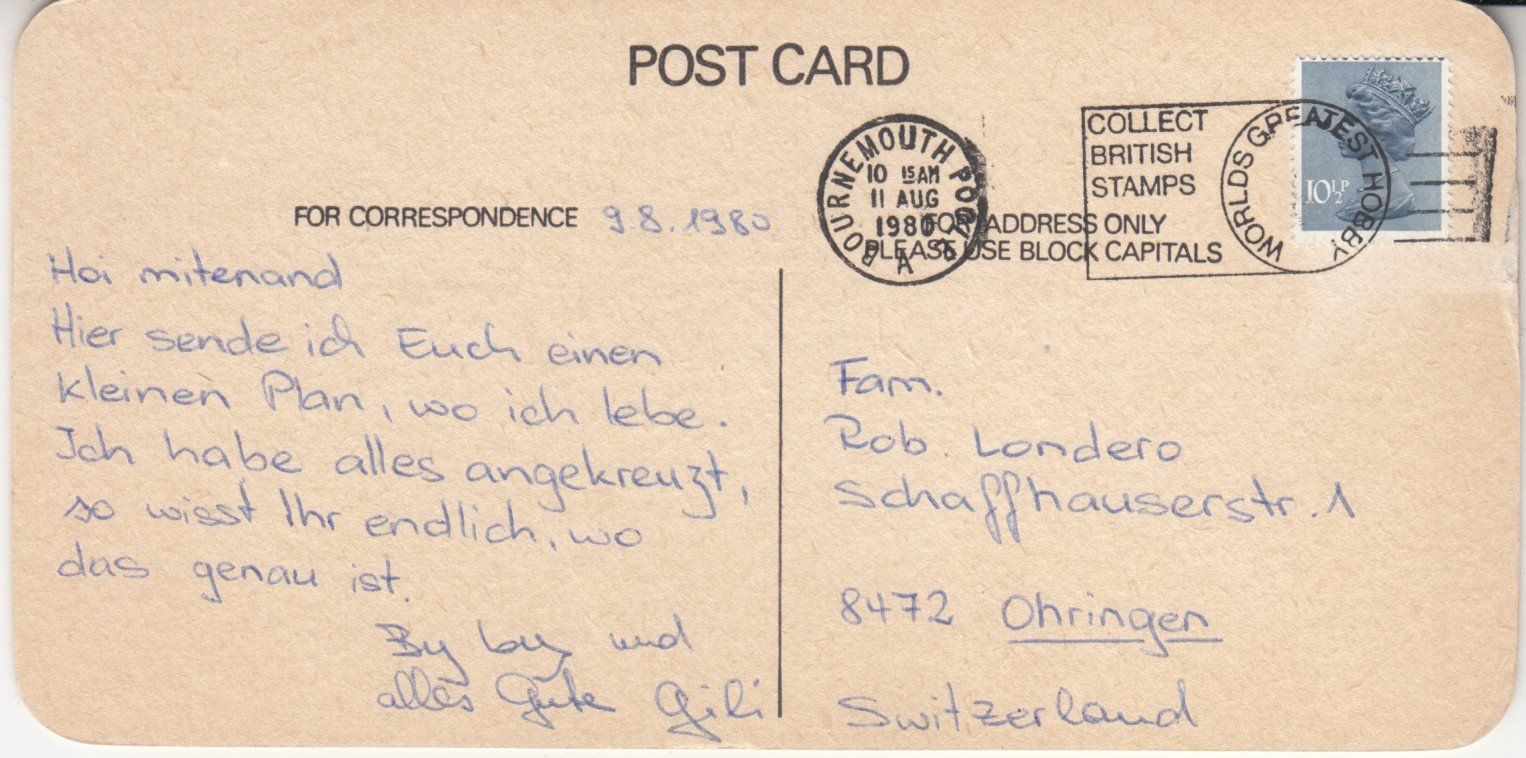 POST CARD
FOR CORRESPONDENCE 9.8.1980
Hoi mitenand
Hier sende ich Euch einen
kleinen Plan, wo ich lebe.
Ich habe alles angekreuzt,
so wisst Ihr endlich, wo
das genau ist.
By by und
alles Gute Gili
BOURNEMOUTH POOLE
10 15AM
11 AUG
1980
A
COLLECT
BRITISH
STAMPS
WORLDS GREATEST HOBBY
10½P
FOR ADDRESS ONLY
PLEASE USE BLOCK CAPITALS
Fam.
Rob. Londero
Schaffhauserstr. 1
8472 Ohringen
Switzerland